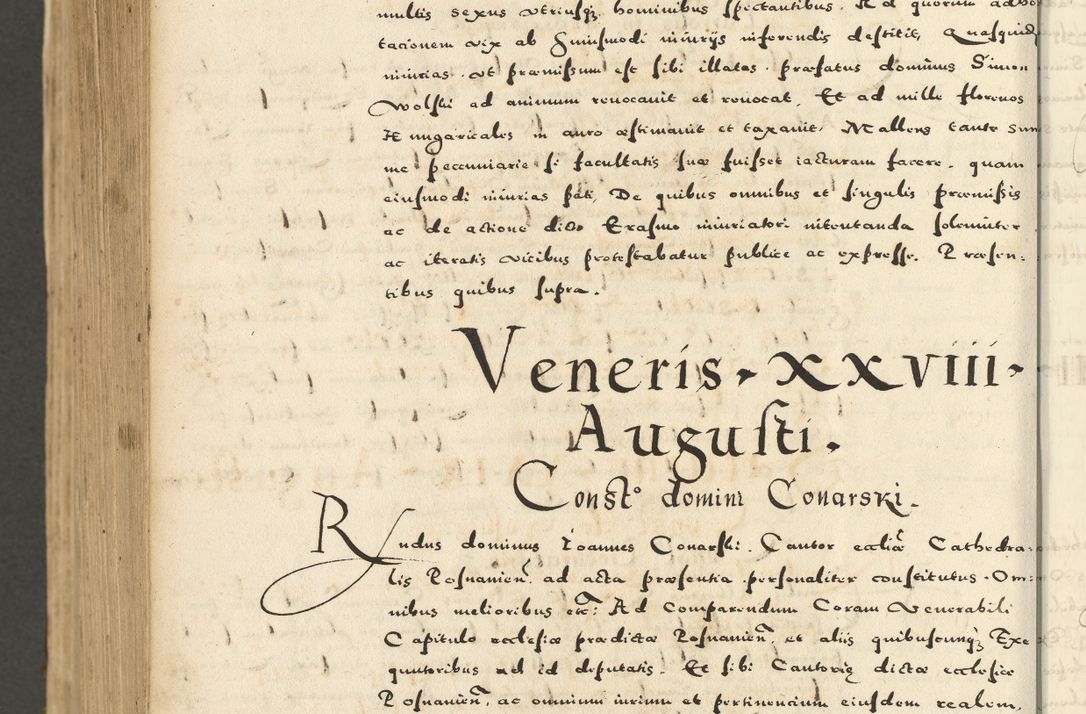 multis sexus utriusqz hominibus spectantibus. Ad quorum advo
cacionem vix ab huiusmodi iniurijs inferendis destitit, Quasquid
iniurias ut præmissum est sibi illatas præfatus dominus Simon
Wolski ad animum revocavit et revocat. Et ad mille florenos
Hungaricales in auro æstimavit et taxavit. Mallens tantæ Sum
me pecuniarie si facultatis suæ fuisset iacturam facere. quam
eiusmodi iniurias pati, De quibus omnibus et singulis præmissis
ac de actione dicto Erasmo iniuriatori intentanda solemniter
ac iteratis vicibus protestabatur publice ac expresse. Præsen:
tibus quibus supra.
Veneris. xxviii.
Augusti.
Const° domini Conarski.
Rndus dominus Ioannes Conarski. Cantor eccliæ Cathedra:
lis Posnanien. ad acta præsentia personaliter constitutus. Om:
nibus melioribus etc: Ad Comparendum Coram Venerabili
Capitulo ecclesiæ prædictæ Posnanien. et aliis quibuscunqz Exe
quutoribus ad id deputatis. Et sibi Cantoriæ dictæ ecclesiæ
Posnanien. ac omnium iurium et pertinencium eiusdem realem,